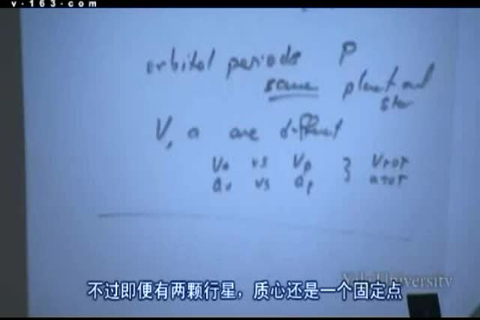 v.163.com
orbital periods P
same planet and
star
V, a are different
V* vs Vp } VTOT
a* vs ap } aTOT
Yale University
不过即便有两颗行星，质心还是一个固定点